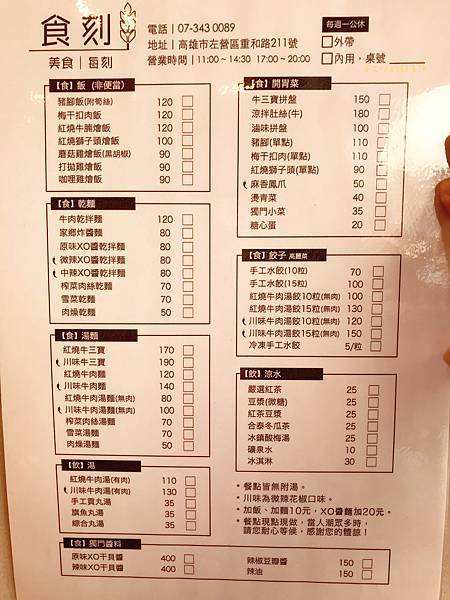 食刻
美食 每刻
電話｜07-343 0089
地址｜高雄市左營區重和路211號
營業時間｜11:00~14:30 17:00~20:00
每週一公休
□外帶
□內用，桌號
【食】飯（非便當）
豬腳飯(附筍絲) 120 □
梅干扣肉飯 120 □
紅燒牛腩燴飯 120 □
紅燒獅子頭燴飯 90 □
蘑菇雞燴飯(黑胡椒) 90 □
打拋雞燴飯 90 □
咖哩雞燴飯 90 □
【食】乾麵
牛肉乾拌麵 120 □
家鄉炸醬麵 80 □
原味XO醬乾拌麵 80 □
微辣XO醬乾拌麵 80 □
中辣XO醬乾拌麵 80 □
榨菜肉絲乾麵 70 □
雪菜乾麵 70 □
肉燥乾麵 50 □
【食】湯麵
紅燒牛三寶 170 □
川味牛三寶 190 □
紅燒牛肉麵 120 □
川味牛肉麵 140 □
紅燒牛肉湯麵(無肉) 80 □
川味牛肉湯麵(無肉) 100 □
榨菜肉絲湯麵 70 □
雪菜湯麵 70 □
肉燥湯麵 50 □
【飲】湯
紅燒牛肉湯(有肉) 110 □
川味牛肉湯(有肉) 130 □
手工貢丸湯 35 □
旗魚丸湯 35 □
綜合丸湯 35 □
【食】開胃菜
牛三寶拼盤 150 □
涼拌肚絲(牛) 180 □
滷味拼盤 100 □
豬腳(單點) 110 □
梅干扣肉(單點) 110 □
紅燒獅子頭(單點) 90 □
麻香鳳爪 50 □
燙青菜 40 □
獨門小菜 35 □
糖心蛋 20 □
【食】餃子 高麗菜
手工水餃(10粒) 70 □
手工水餃(15粒) 100 □
紅燒牛肉湯餃10粒(無肉) 100 □
紅燒牛肉湯餃15粒(無肉) 130 □
川味牛肉湯餃10粒(無肉) 120 □
川味牛肉湯餃15粒(無肉) 150 □
冷凍手工水餃 5/粒 □
【飲】涼水
嚴選紅茶 25 □
豆漿(微糖) 25 □
紅茶豆漿 25 □
合泰冬瓜茶 25 □
冰鎮酸梅湯 25 □
礦泉水 10 □
冰淇淋 30 □
* 餐點皆無附湯。
* 川味為微辣花椒口味。
* 加飯、加麵10元，XO醬麵加20元。
* 餐點現點現做，當人潮眾多時，
請您耐心等候，感謝您的體諒！
【食】獨門醬料
原味XO干貝醬 400 □
辣味XO干貝醬 400 □
辣椒豆瓣醬 150 □
辣油 150 □